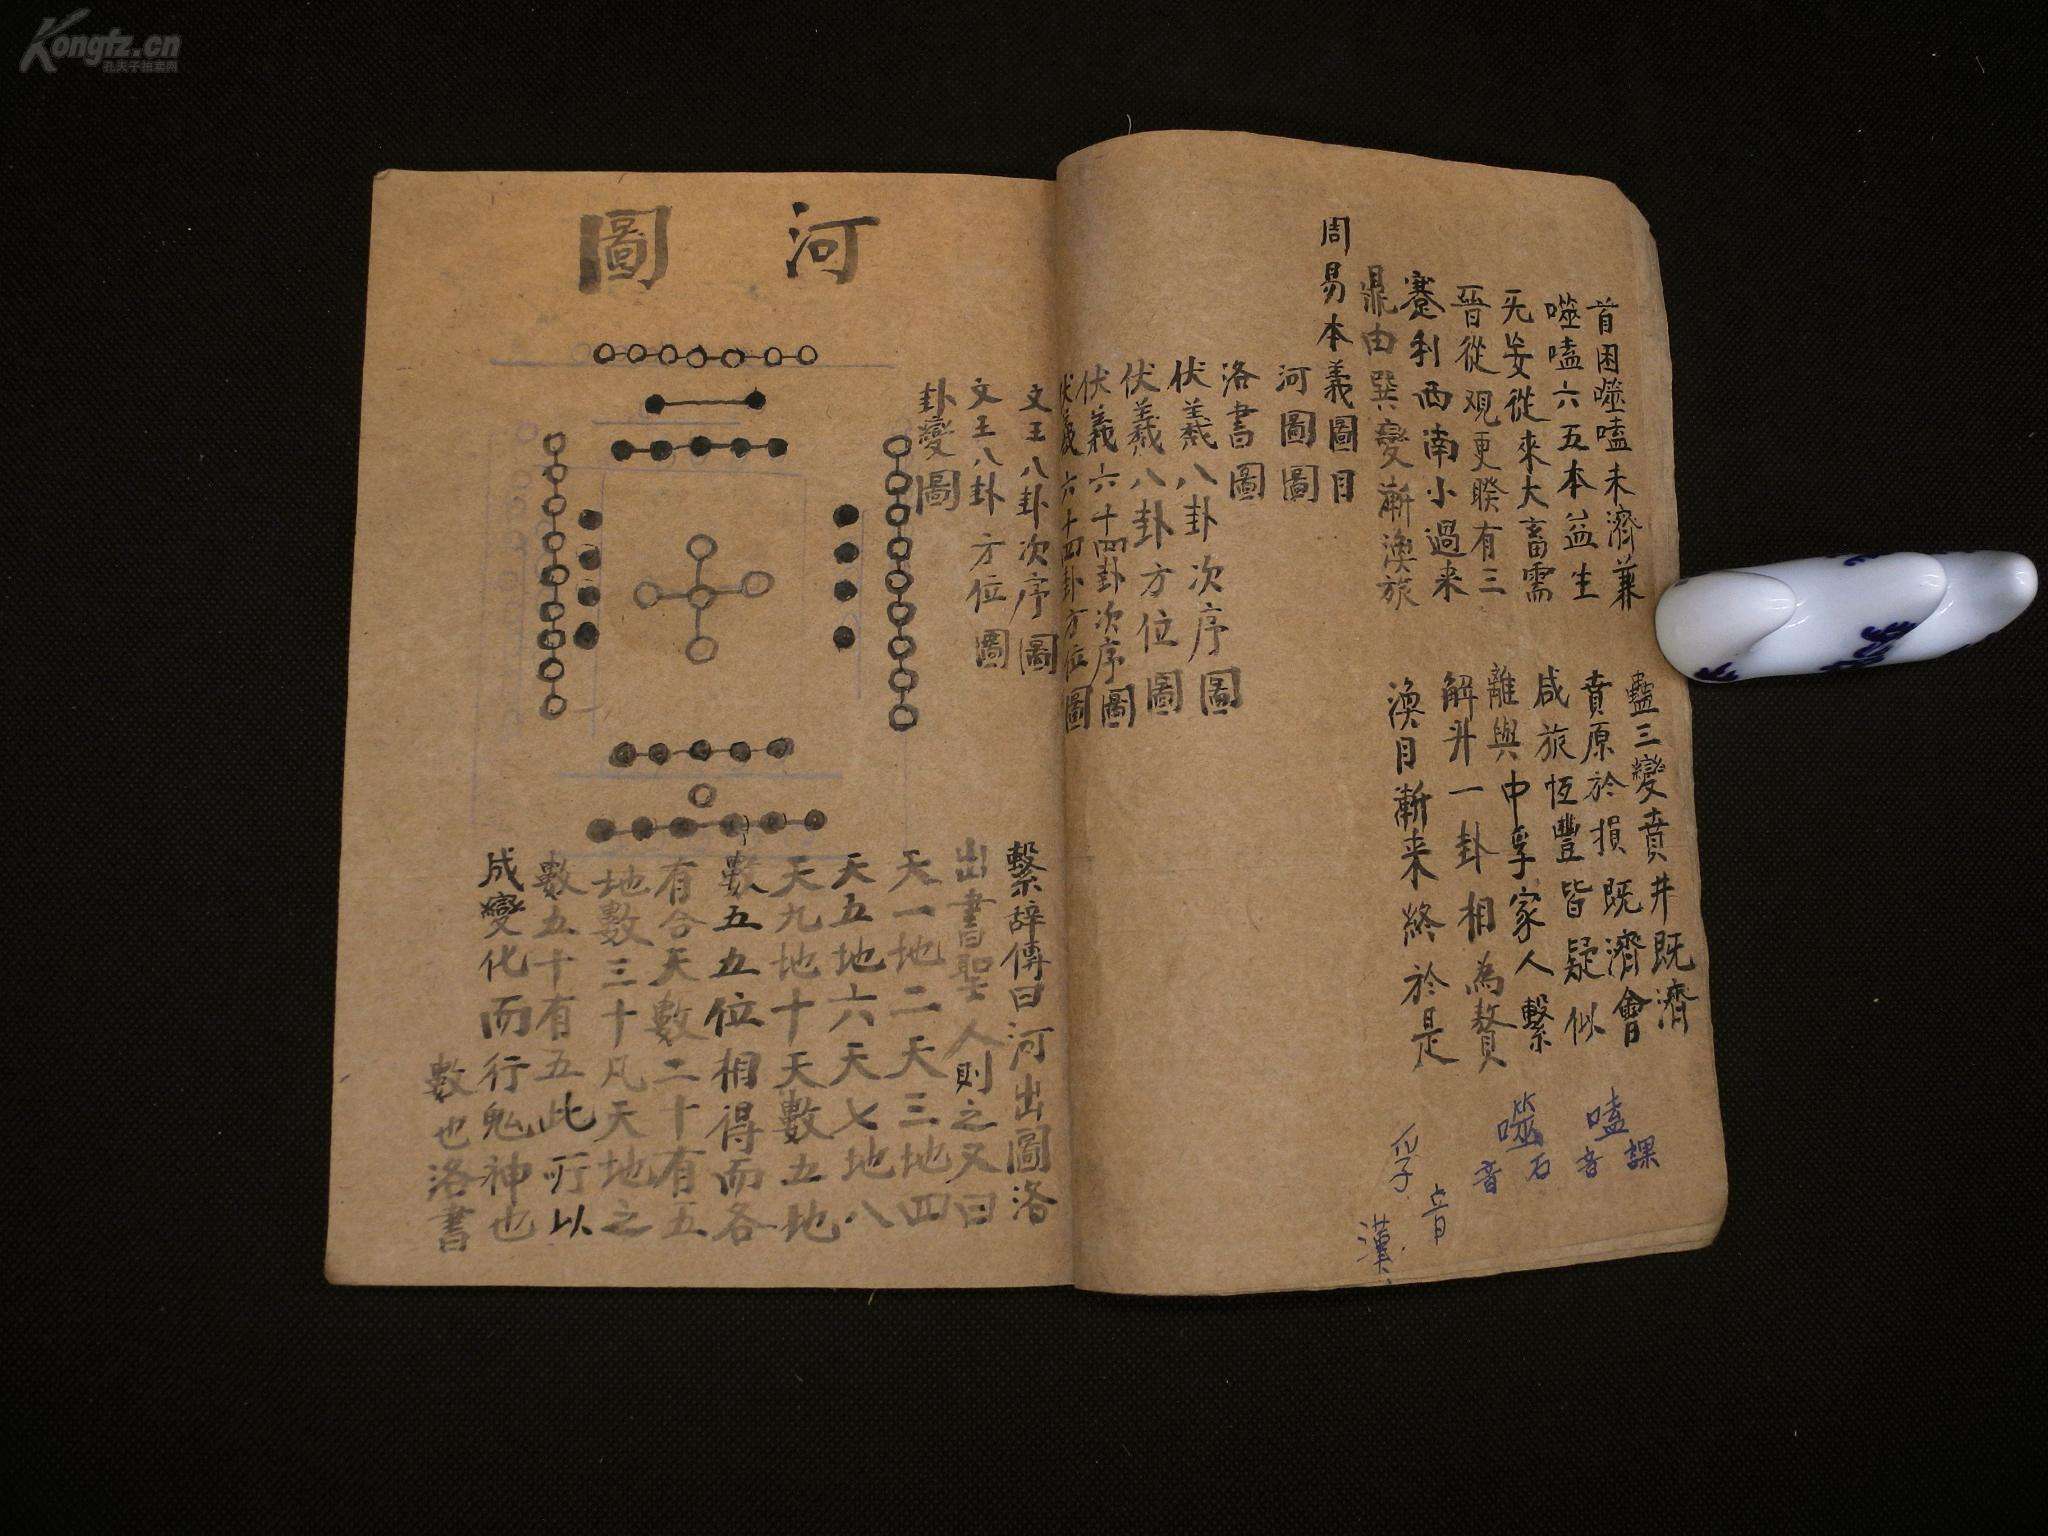 首困噬嗑未濟兼 蠱三變賁井既濟
噬嗑六五本益生 賁原於損既濟會
无妄從來大畜需 咸旅恆豐皆疑似
晉從观更睽有三 離與中孚家人繫
蹇利西南小過来 解升一卦相為贅
鼎由巽變漸渙旅 渙目漸来終於是
嗑音課
噬音石
孚音
漢
周易本義圖目
河圖圖
洛書圖
伏羲八卦次序圖
伏羲八卦方位圖
伏羲六十四卦次序圖
伏羲六十四卦方位圖
文王八卦次序圖
文王八卦方位圖
卦變圖
河圖
繫辭傳曰河出圖洛
出書聖人則之又曰
天一地二天三地四
天五地六天七地八
天九地十天數五地
數五五位相得而各
有合天數二十有五
地數三十凡天地之
數五十有五此所以
成變化而行鬼神也
數也洛書
Kongfz.cn
孔夫子拍卖网